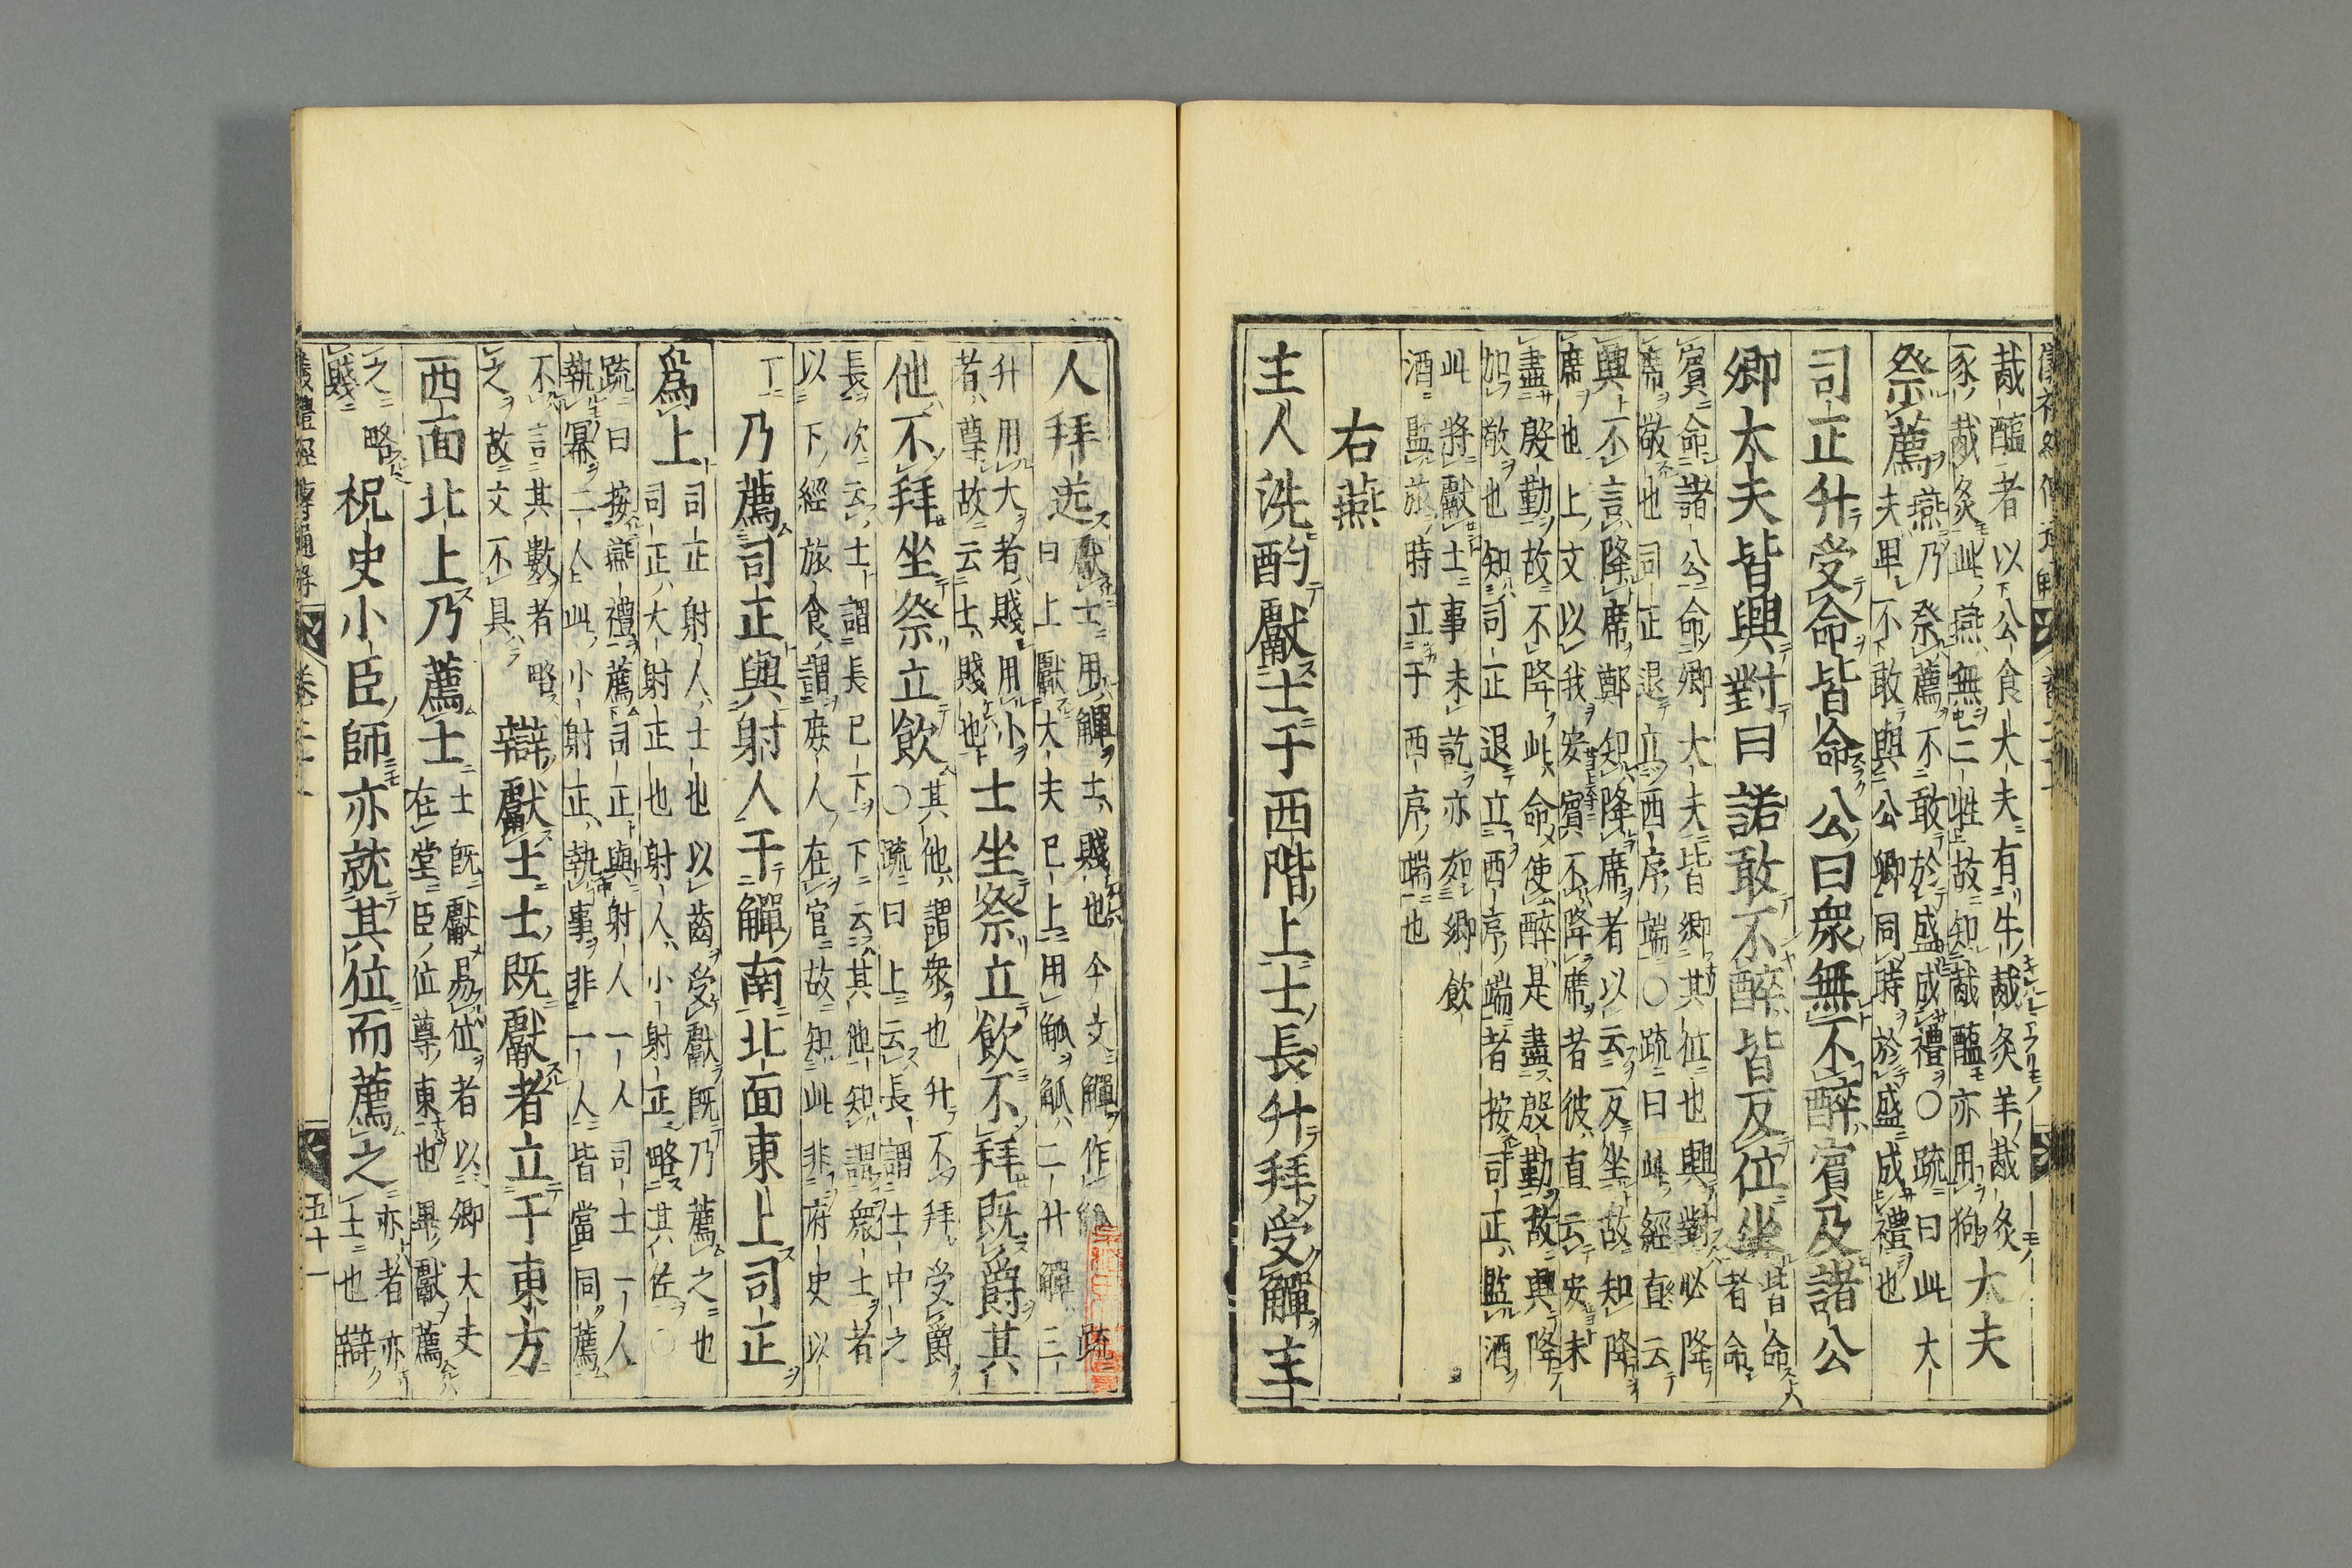 胾醢者以公食大夫有牛胾炙羊胾炙
豕胾炙此燕無二牲故知胾醢亦用狗 大夫
祭薦 燕乃祭薦不敢於盛成禮○疏曰此大
夫卑不敢與公卿同時於盛成禮也
司正升受命皆命公曰衆無不醉賓及諸公
卿大夫皆興對曰諾敢不醉皆反位坐 皆命
者命
賓命諸公命卿大夫皆鄉其位也興對必降
席敬也司正退立西序端○疏曰此經直云
興不言降席鄭知降席者以云反坐故知降
席也上文以我安賓不降席者彼直云安未
盡殷勤故不降此命使醉是盡殷勤故興降
如敬也知司正退立西序端者按司正監酒
此將獻士事未訖亦如鄉飲
酒監旅時立于西序端也
右燕
主人洗酌獻士于西階上士長升拜受觶主
人拜送 獻士用觶士賤也今文觶作觚 疏
曰上獻大夫已上用觚觚二升觶三
升用大者賤用小
者尊故云士賤也 士坐祭立飲不拜既爵其
他不拜坐祭立飲 其他謂衆也升不拜受爵
○疏曰上云長謂士中之
長次云士謂長已下下云其他知謂衆士者
以下經旅食謂庶人在官故知此非府史以
丁
乃薦司正與射人于觶南北面東上司正
爲上 司正射人士也以齒受獻既乃薦之也
司正大射正也射人小射正略其佐○
疏曰按燕禮薦司正與射人一人司士一人
執冪二人此小射正執事非一人皆當同薦
不言其數者略
之故文不具 辯獻士士既獻者立于東方
西面北上乃薦士 士既獻易位者以卿大夫
在堂臣位尊東也畢獻薦
之略
賤 祝史小臣師亦就其位而薦之 亦者亦
士也辯
儀禮經傳通解 卷二十 五十一